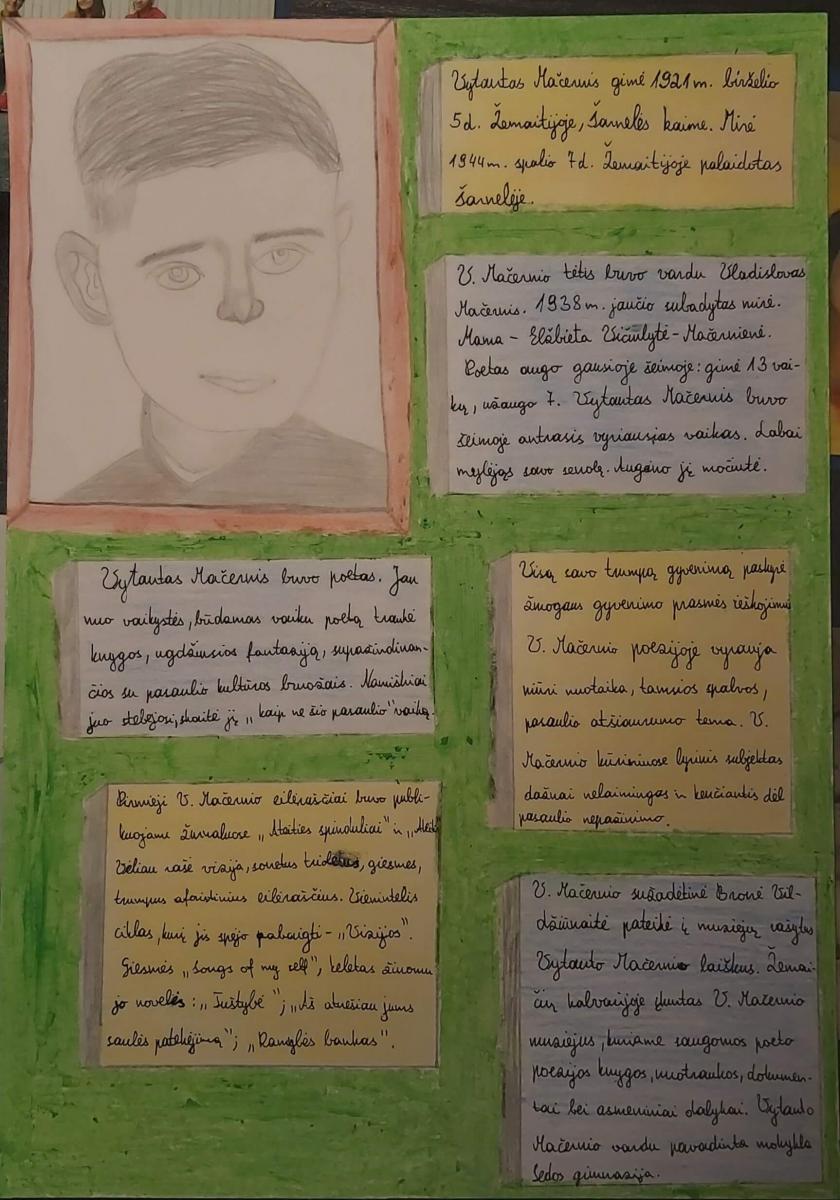 Vytautas Mačernis gimė 1921 m. birželio
5 d. Žemaitijoje, Šarnelės kaime. Mirė
1944 m. spalio 7 d. Žemaitijoje palaidotas
Šarnelėje.
V. Mačernio tėtis buvo vardu Vladislovas
Mačernis. 1938 m. jaučio subadytas mirė.
Mama - Elžbieta Vičiulytė - Mačernienė.
Poetas augo gausioje šeimoje: gimė 13 vai-
kų, užaugo 7. Vytautas Mačernis buvo
šeimoje antrasis vyriausias vaikas. Labai
mylėjęs savo senolę. Augino jį močiutė.
Vytautas Mačernis buvo poetas. Jau
nuo vaikystės, būdamas vaiku poetą traukė
knygos, ugdžiusios fantaziją, supažindinan-
čios su pasaulio kultūros bruožais. Namiškiai
juo stebėjosi, skaitė jį „kaip ne šio pasaulio" vaiką.
Visą savo trumpą gyvenimą paskyrė
žmogaus gyvenimo prasmės ieškojimui
V. Mačernio poezijoje vyrauja
niūri nuotaika, tamsios spalvos,
pasaulio atšiaurumo tema. V.
Mačernio kūriniuose lyrinis subjektas
dažnai nelaimingas ir kenčiantis dėl
pasaulio nepažinimo.
Pirmieji V. Mačernio eilėraščiai buvo publi-
kuojami žurnaluose „Ateities spinduliai" ir
Vėliau rašė vizija, sonetus trioletus, giesmes,
trumpus aforistinius eilėraščius. Vienintelis
ciklas, kurį jis spėjo pabaigti - „Vizijos".
Giesmės „Songs of my self", keletas žinomų
jo novelės: „Tuštybė"; „Aš atnešiau jums
saulės patekėjimą"; „Ramybės bankas".
V. Mačernio sužadėtinė Bronė Vil-
džiūnaitė pateikė į muziejų rašytus
Vytauto Mačernio laiškus. Žemai-
čių kalvarijoje įkurtas V. Mačernio
muziejus, kuriame saugomos poeto
poezijos knygos, nuotraukos, dokumen-
tai bei asmeniniai dalykai. Vytauto
Mačernio vardu pavadinta mokykla
Sedos gimnazija.